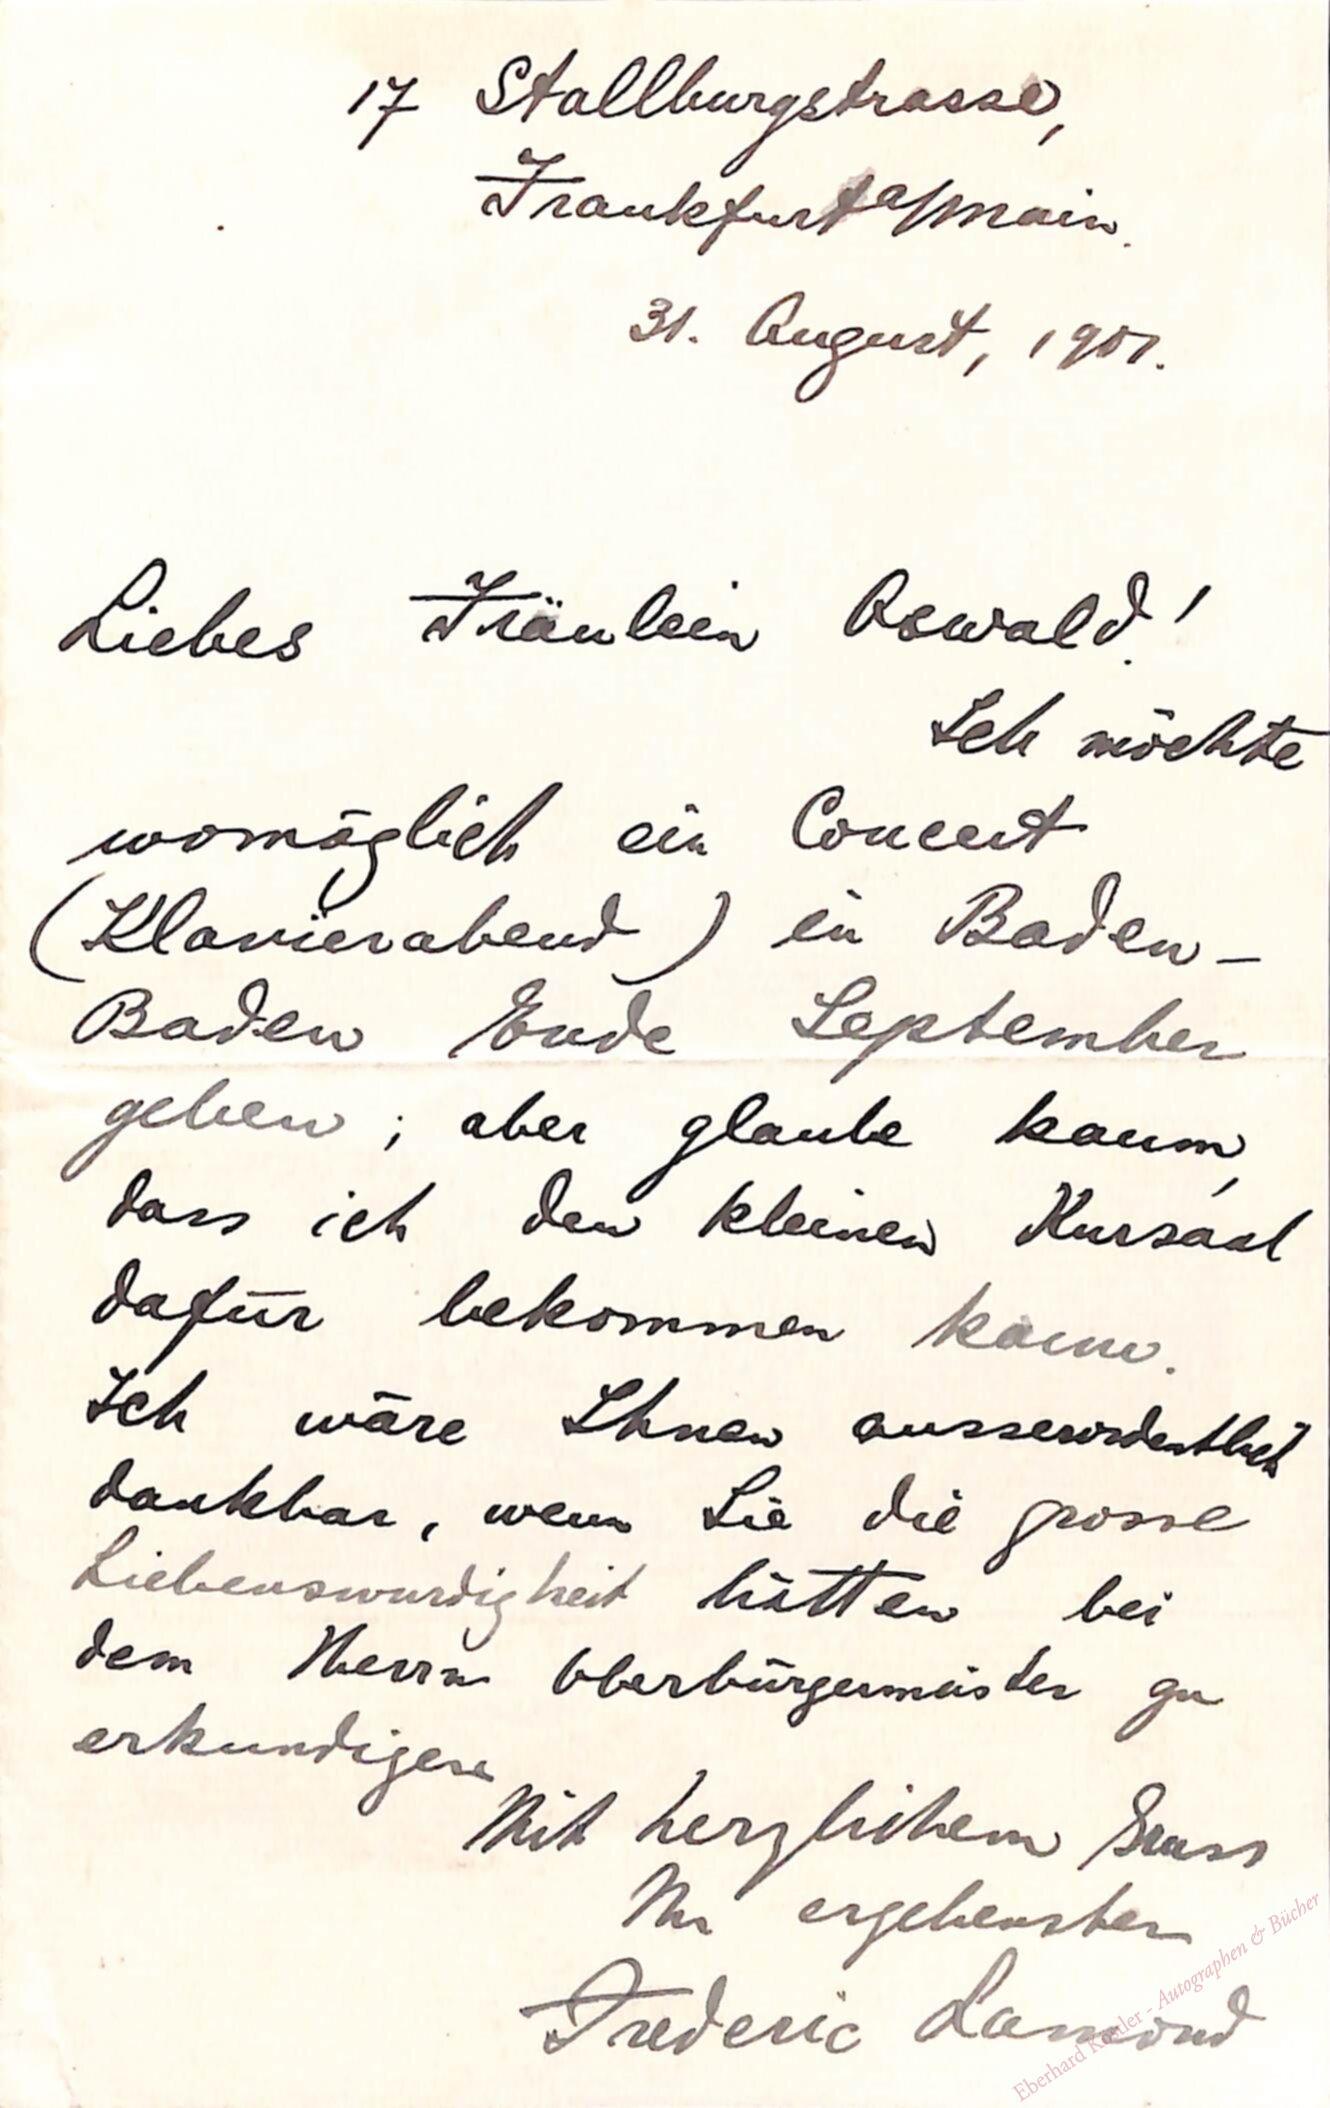 17 Stallburgstrasse,
Frankfurt a/Main.
31. August, 1901.
Liebes Fräulein Oswald!
Ich möchte
womöglich ein Concert
(Klavierabend) in Baden-
Baden Ende September
geben; aber glaube kaum,
dass ich den kleinen Kursaal
dafür bekommen kann.
Ich wäre Ihnen ausserordentlich
dankbar, wenn Sie die grosse
Liebenswurdigkeit hätten bei
dem Herrn Oberbürgermeister zu
erkundigen
Mit herzlichem Gruss
Ihr ergebenster
Frederic Lamond
Eberhard Köstler - Autographen & Bücher